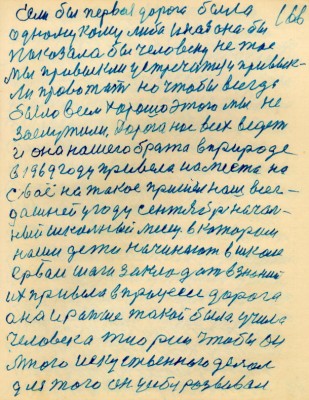 Если бы первая дорога была 166
одному кому либо она бы
показала бы человеку не то
мы привыкли устречать и привык-
ли работать но чтобы всегда
было всем хорошо этого мы не
заслужили. Дорога нас всех ведет
и она нашего брата в природе
в 1969 году привела на места на
своё на такое прийти наш все-
дашней угоду сентября начал-
ный школьный месяц в котором
наши дети начинают в школе
первые шаги закладать в знании
их привела в процессе дорога
она и раньше такой была учила
человека теории чтобы он
этого искуственного делал
для этого он учобу развивал